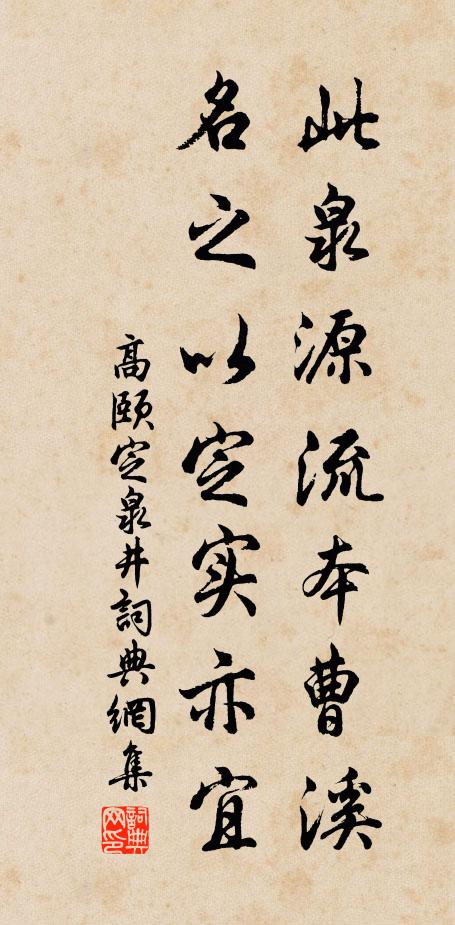 此泉源流本曹溪
名之以定实亦宜
高颐定泉井詞典網集
詞典网印